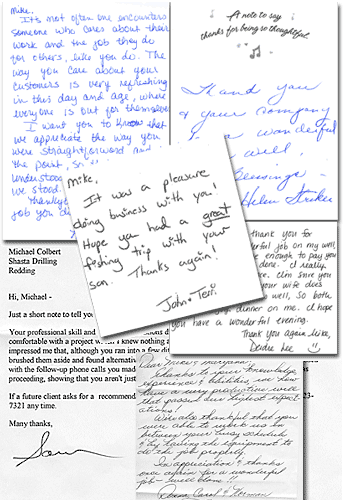 Mike,
It's not often one encounters
someone who cares about their
work and the job they do
for others, like you do. The
way you care about your
customers is very refreshing
in this day and age, where
everyone is out for themselves
I want you to know that
we appreciate the way you
were straightforward and
the point, so
understood
we stood.
Thank
job you d
A note to say
thanks for being so thoughtful
Thank you
& your company
a wonderful
well.
Blessings -
Helen
Mike,
It was a pleasure
doing business with you!
Hope you had a great
fishing trip with your
son. Thanks again!
John & Terri
thank you for
derful job on my well,
enough to pay you
done. I really
I'm sure you
your wife does
well, so both
dinner on me. I hope
you have a wonderful evening.
Thank you again Mike,
Deidre Lee
Michael Colbert
Shasta Drilling
Redding
Hi, Michael -
Just a short note to tell you
Your professional skill and
comfortable with a project w
knew nothing
impressed me that, although you ran into a few di
brushed them aside and found alternativ
with the follow-up phone calls you made
proceeding, showing that you aren't just
If a future client asks for a recommend
7321 any time.
23-
Many thanks,
Dear Mike &
Thanks to your knowledge
experience & abilities, we now
have a very productive well
that passed our highest expect-
ations!
We're also thankful that you
were able to work us in
between your busy schedule
& by having the equipment to
do the job properly.
In appreciation & thanks
once again for a wonderful
job - well done!!
Carol & Norman